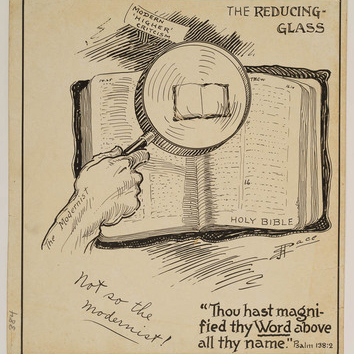 THE REDUCING-
GLASS
MODERN
"HIGHER"
CRITICISM
The Modernist
16
HOLY BIBLE
Pace
Not so the
Modernist!
"Thou hast magni-
fied thy Word above
all thy name." Psalm 138:2